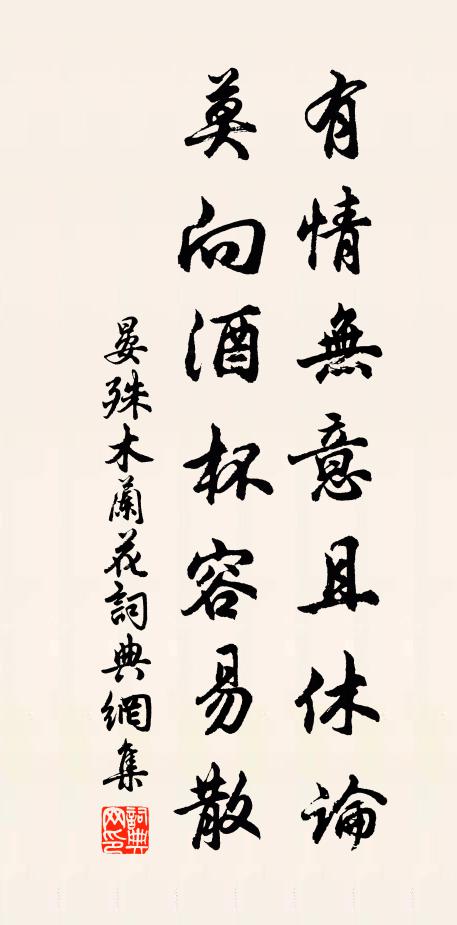 有情無意且休論
莫向酒杯容易散
晏殊木蘭花詞典網集
詞典網印